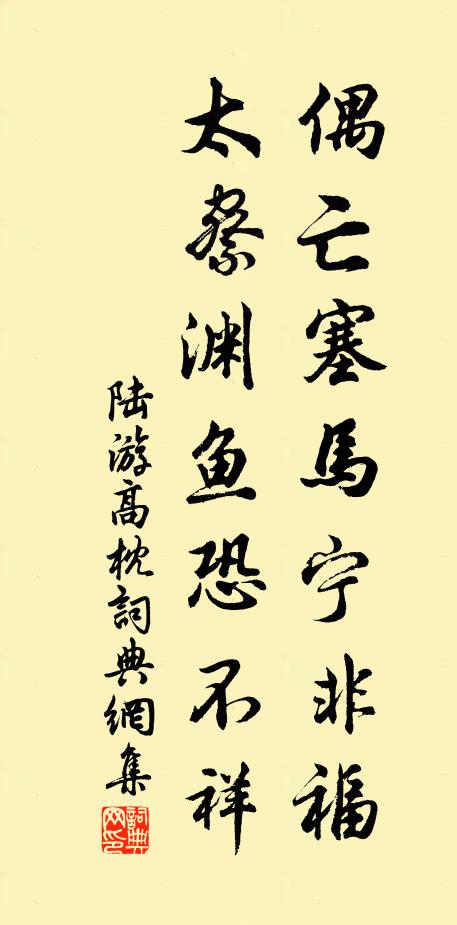 偶亡塞馬宁非福
太察渊鱼恐不祥
陆游高枕詞典網集
詞典网印